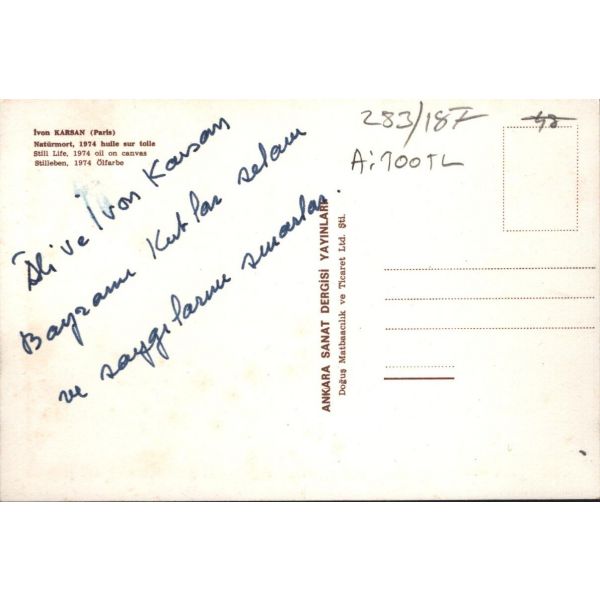 İvon KARSAN (Paris)
Natürmort, 1974 huile sur toile
Still Life, 1974 oil on canvas
Stilleben, 1974 Ölfarbe
Ali ve İvon Karsan
Bayramı Kutlar selam
ve saygılarını sunarlar.
283/187
A:100TL
ANKARA SANAT DERGİSİ YAYINLARI
Doğuş Matbaacılık ve Ticaret Ltd. Şti.